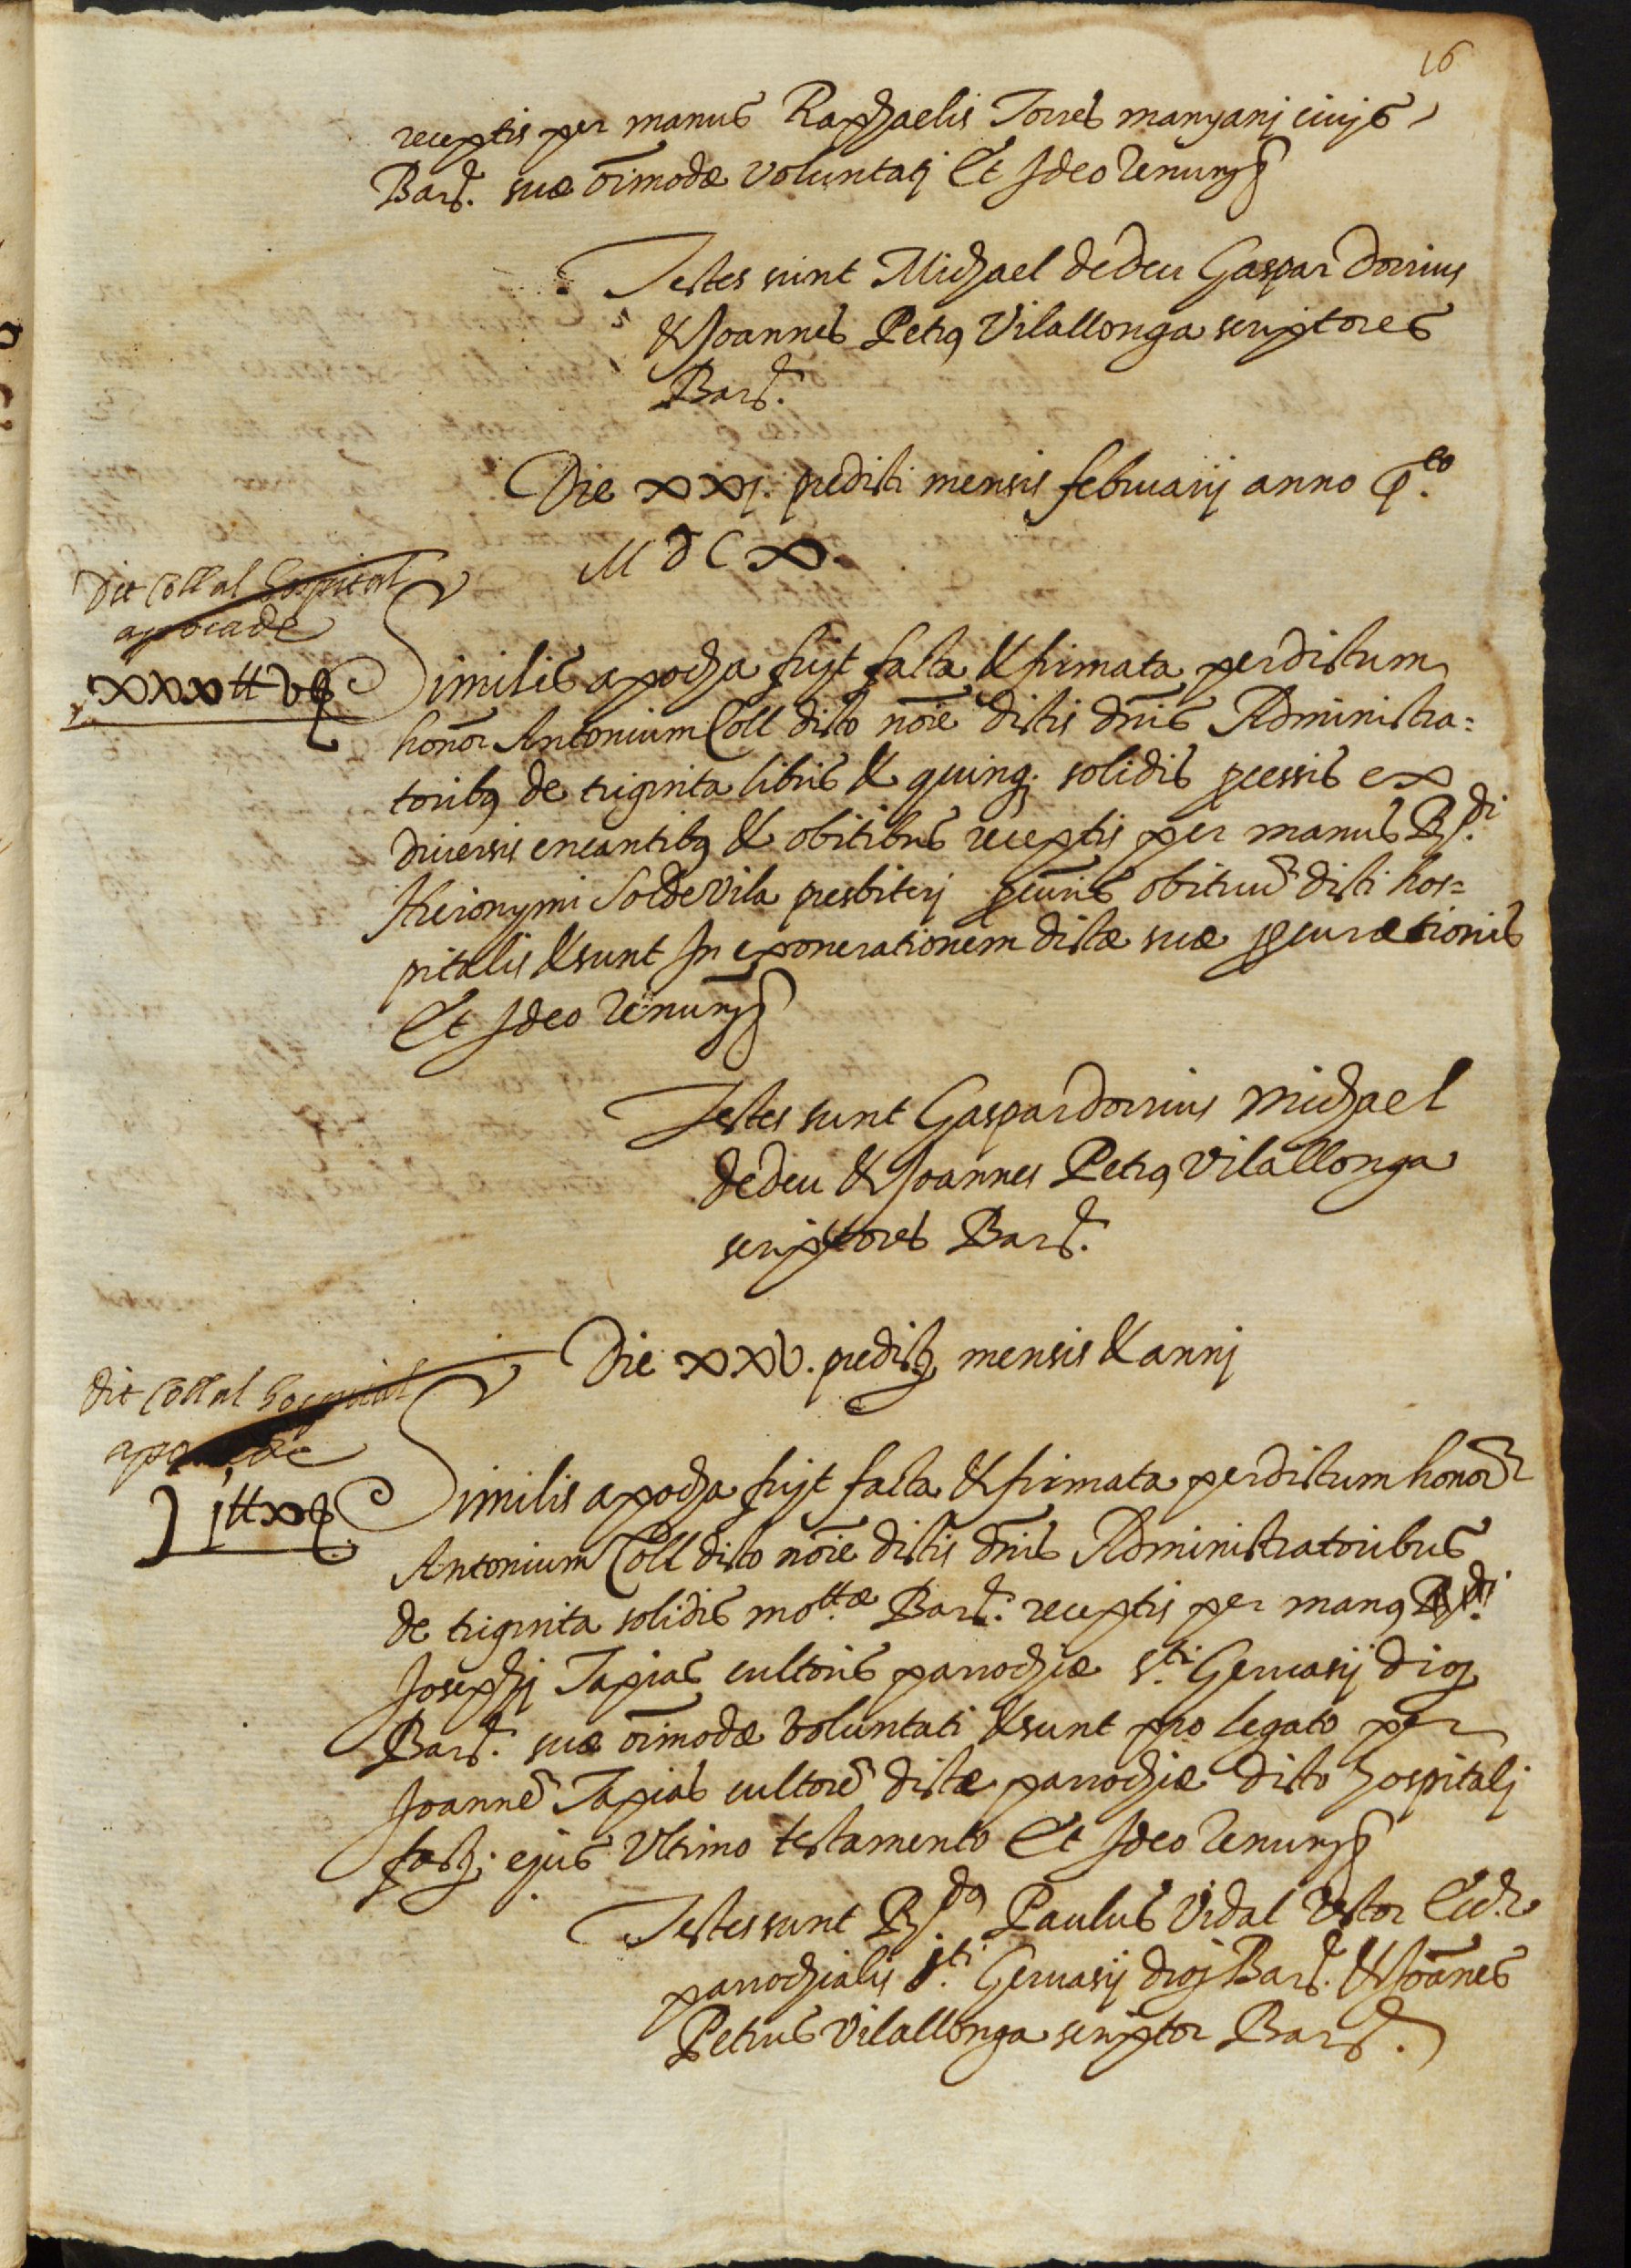 16
receptis per manus Raphaelis Torres manyani civis
Barᶜ. suæ oīmodæ voluntatj Et Ideo Renunᶜ
Testes sunt Michael dedeu Gaspar Dorrius
& Joannes Petrꝰ Vilallonga scriptores
Barᶜ.
Die xxj. predicti mensis februarij anno
MDCX.
Dit Coll al hospital
apoca de
xxx ₶ v ſ
Similis apocha fuyt facta & firmata per dictum
honor Antonium Coll dicto noīe dictis dnīs Administra=
toribꝰ de triginta libris & quinqꝫ solidis ꝓcessis ex
diversis encantibꝰ & obitibus receptis per manus Rᵈⁱ.
Hieronymi Soldevila presbiterj ꝓcūris obituū dicti hos=
pitalis & sunt In exonerationem dictæ suæ ꝓcurætionis
Et Ideo Renunᶜ
Testes sunt Gaspar Dorrius Michael
dedeu & Joannes Petrꝰ Vilallonga
scriptores Barᶜ.
Die xxv. predictꝫ mensis & annj
Dit Coll al hospital
apoca de
j ₶ x ſ
Similis apocha fuyt facta & firmata per dictum honorᵉ
Antonium Coll dicto noīe dictis dnīs Administratoribus
de triginta solidis moᵗᵗæ Barᶜ. receptis per manꝰ
Josephj Tapias cultoris parrochiæ sᵗⁱ. Gervasij dioꝫ
Barᶜ. suæ oīmodæ voluntati & sunt pro legato per
Joannē Tapias cultorē dictæ parrochiæ dicto hospitalj
factꝫ. ejus Vltimo testamento Et Ideo Renunᶜ
Testes sunt Rᵈꝰ. Paulus Vidal Rector Eccle
parrochialis sᵗⁱ. Gervasij dioj Barᶜ. & Joānes
Petrus Vilallonga scriptor Barᶜ.